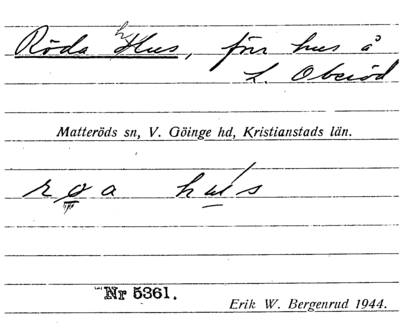 Röda Hus, förr hus å
L. Oberöd
Matteröds sn, V. Göinge hd, Kristianstads län.
rǫa hus
Nr 5361.
Erik W. Bergenrud 1944.